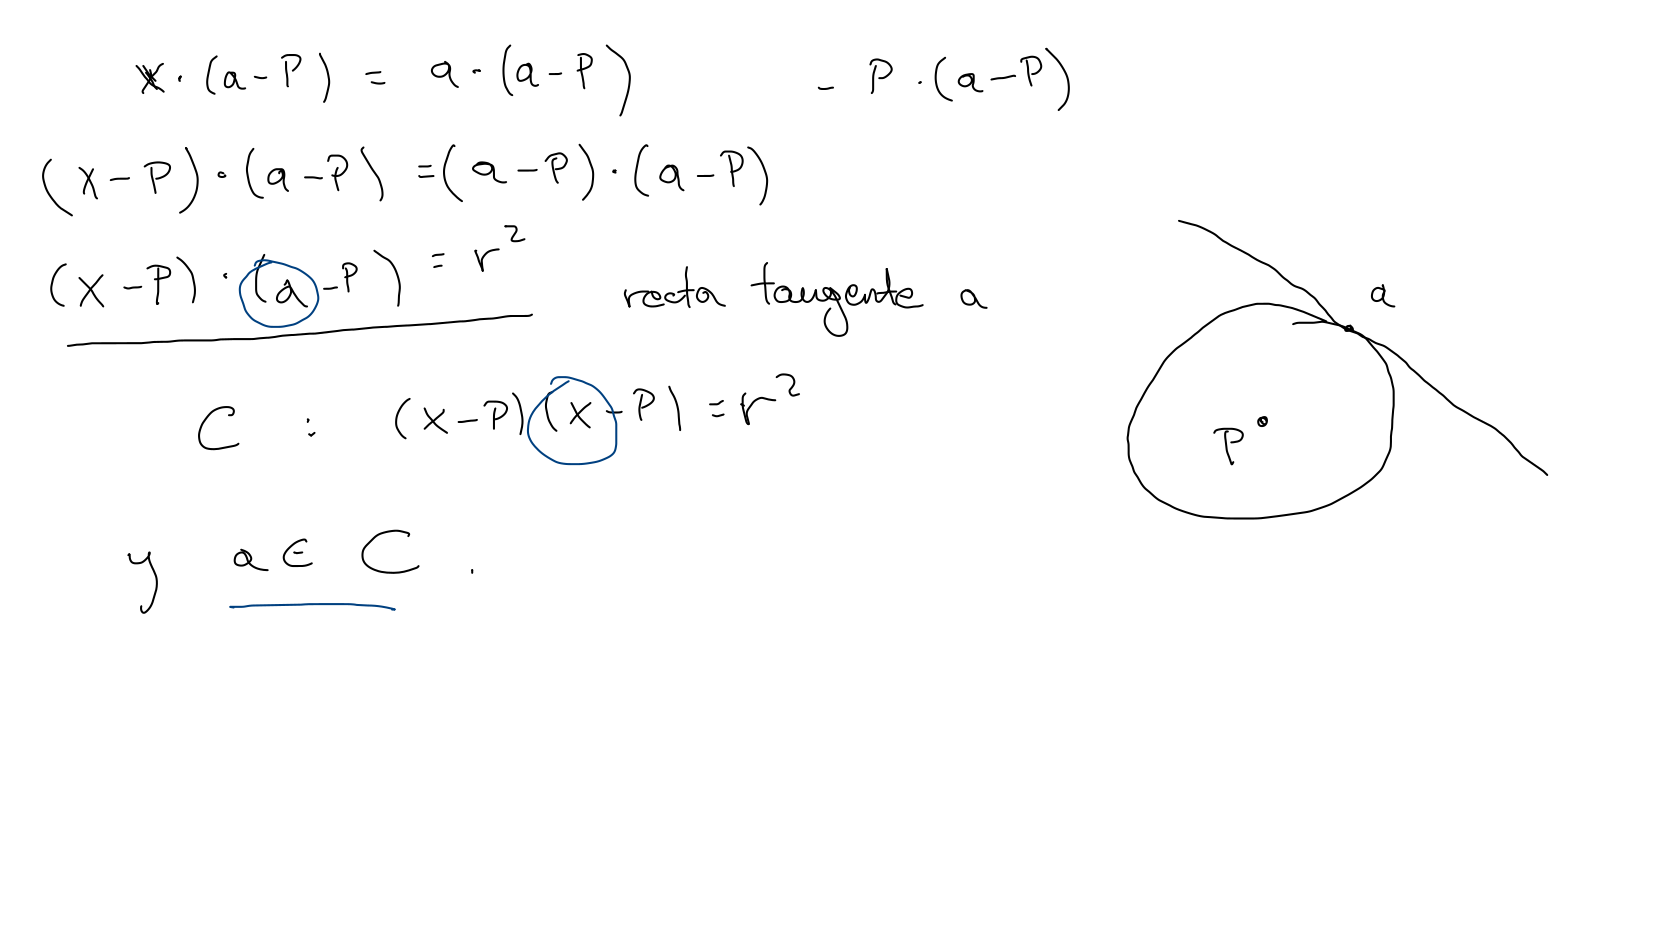 x · (a - P) = a · (a - P) - P · (a - P)
(x - P) · (a - P) = (a - P) · (a - P)
(x - P) · (a - P) = r² recta tangente a
C : (x - P)(x - P) = r²
y a ∈ C .
a
P